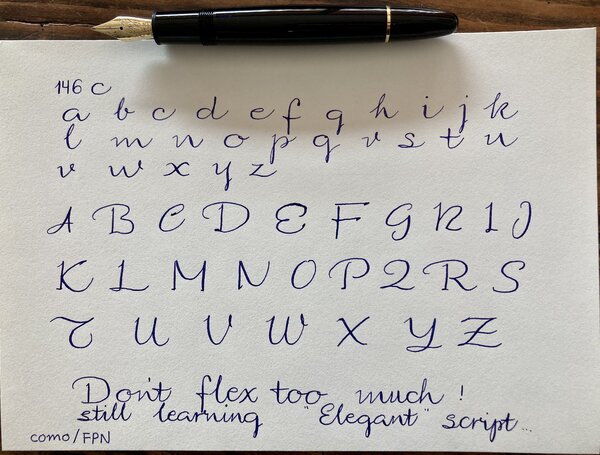 146 C
a b c d e f g h i j k
l m n o p q r s t u
v w x y z
A B C D E F G H I J
K L M N O P Q R S
T U V W X Y Z
Don't flex too much !
still learning "Elegant" script...
como/FPN